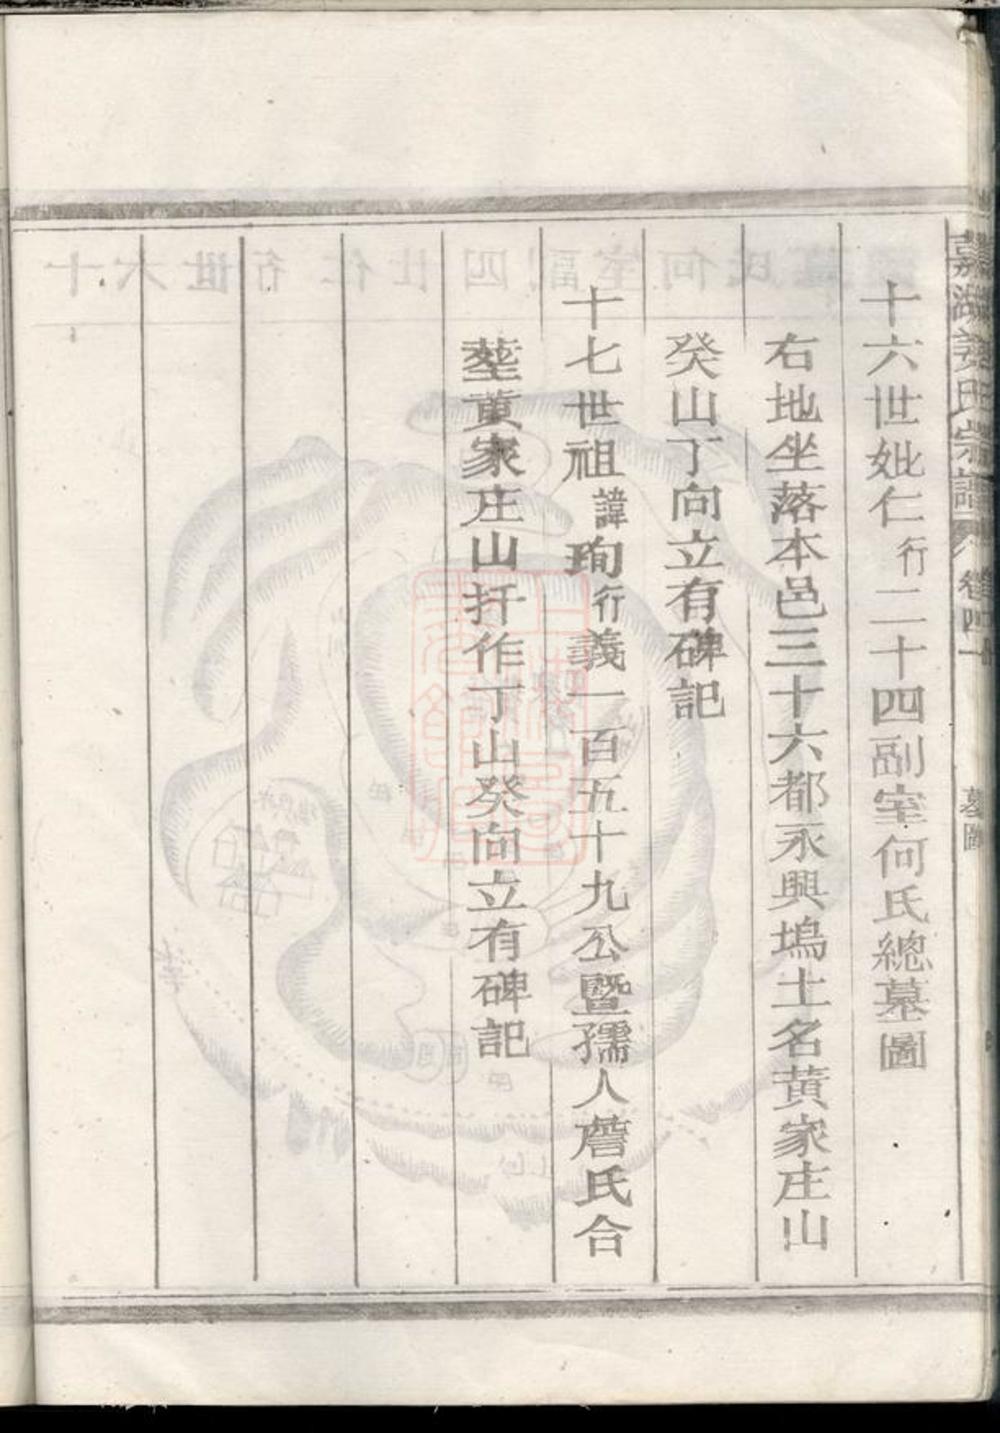 十六世妣仁行二十四副室何氏總墓圖
右地坐落本邑三十六都永興塢土名黄家庄山
癸山丁向立有碑記
十七世祖諱珣行義一百五十九公暨孺人詹氏合
塟黄家庄山扦作丁山癸向立有碑記
氏宗譜
卷四
墓圖